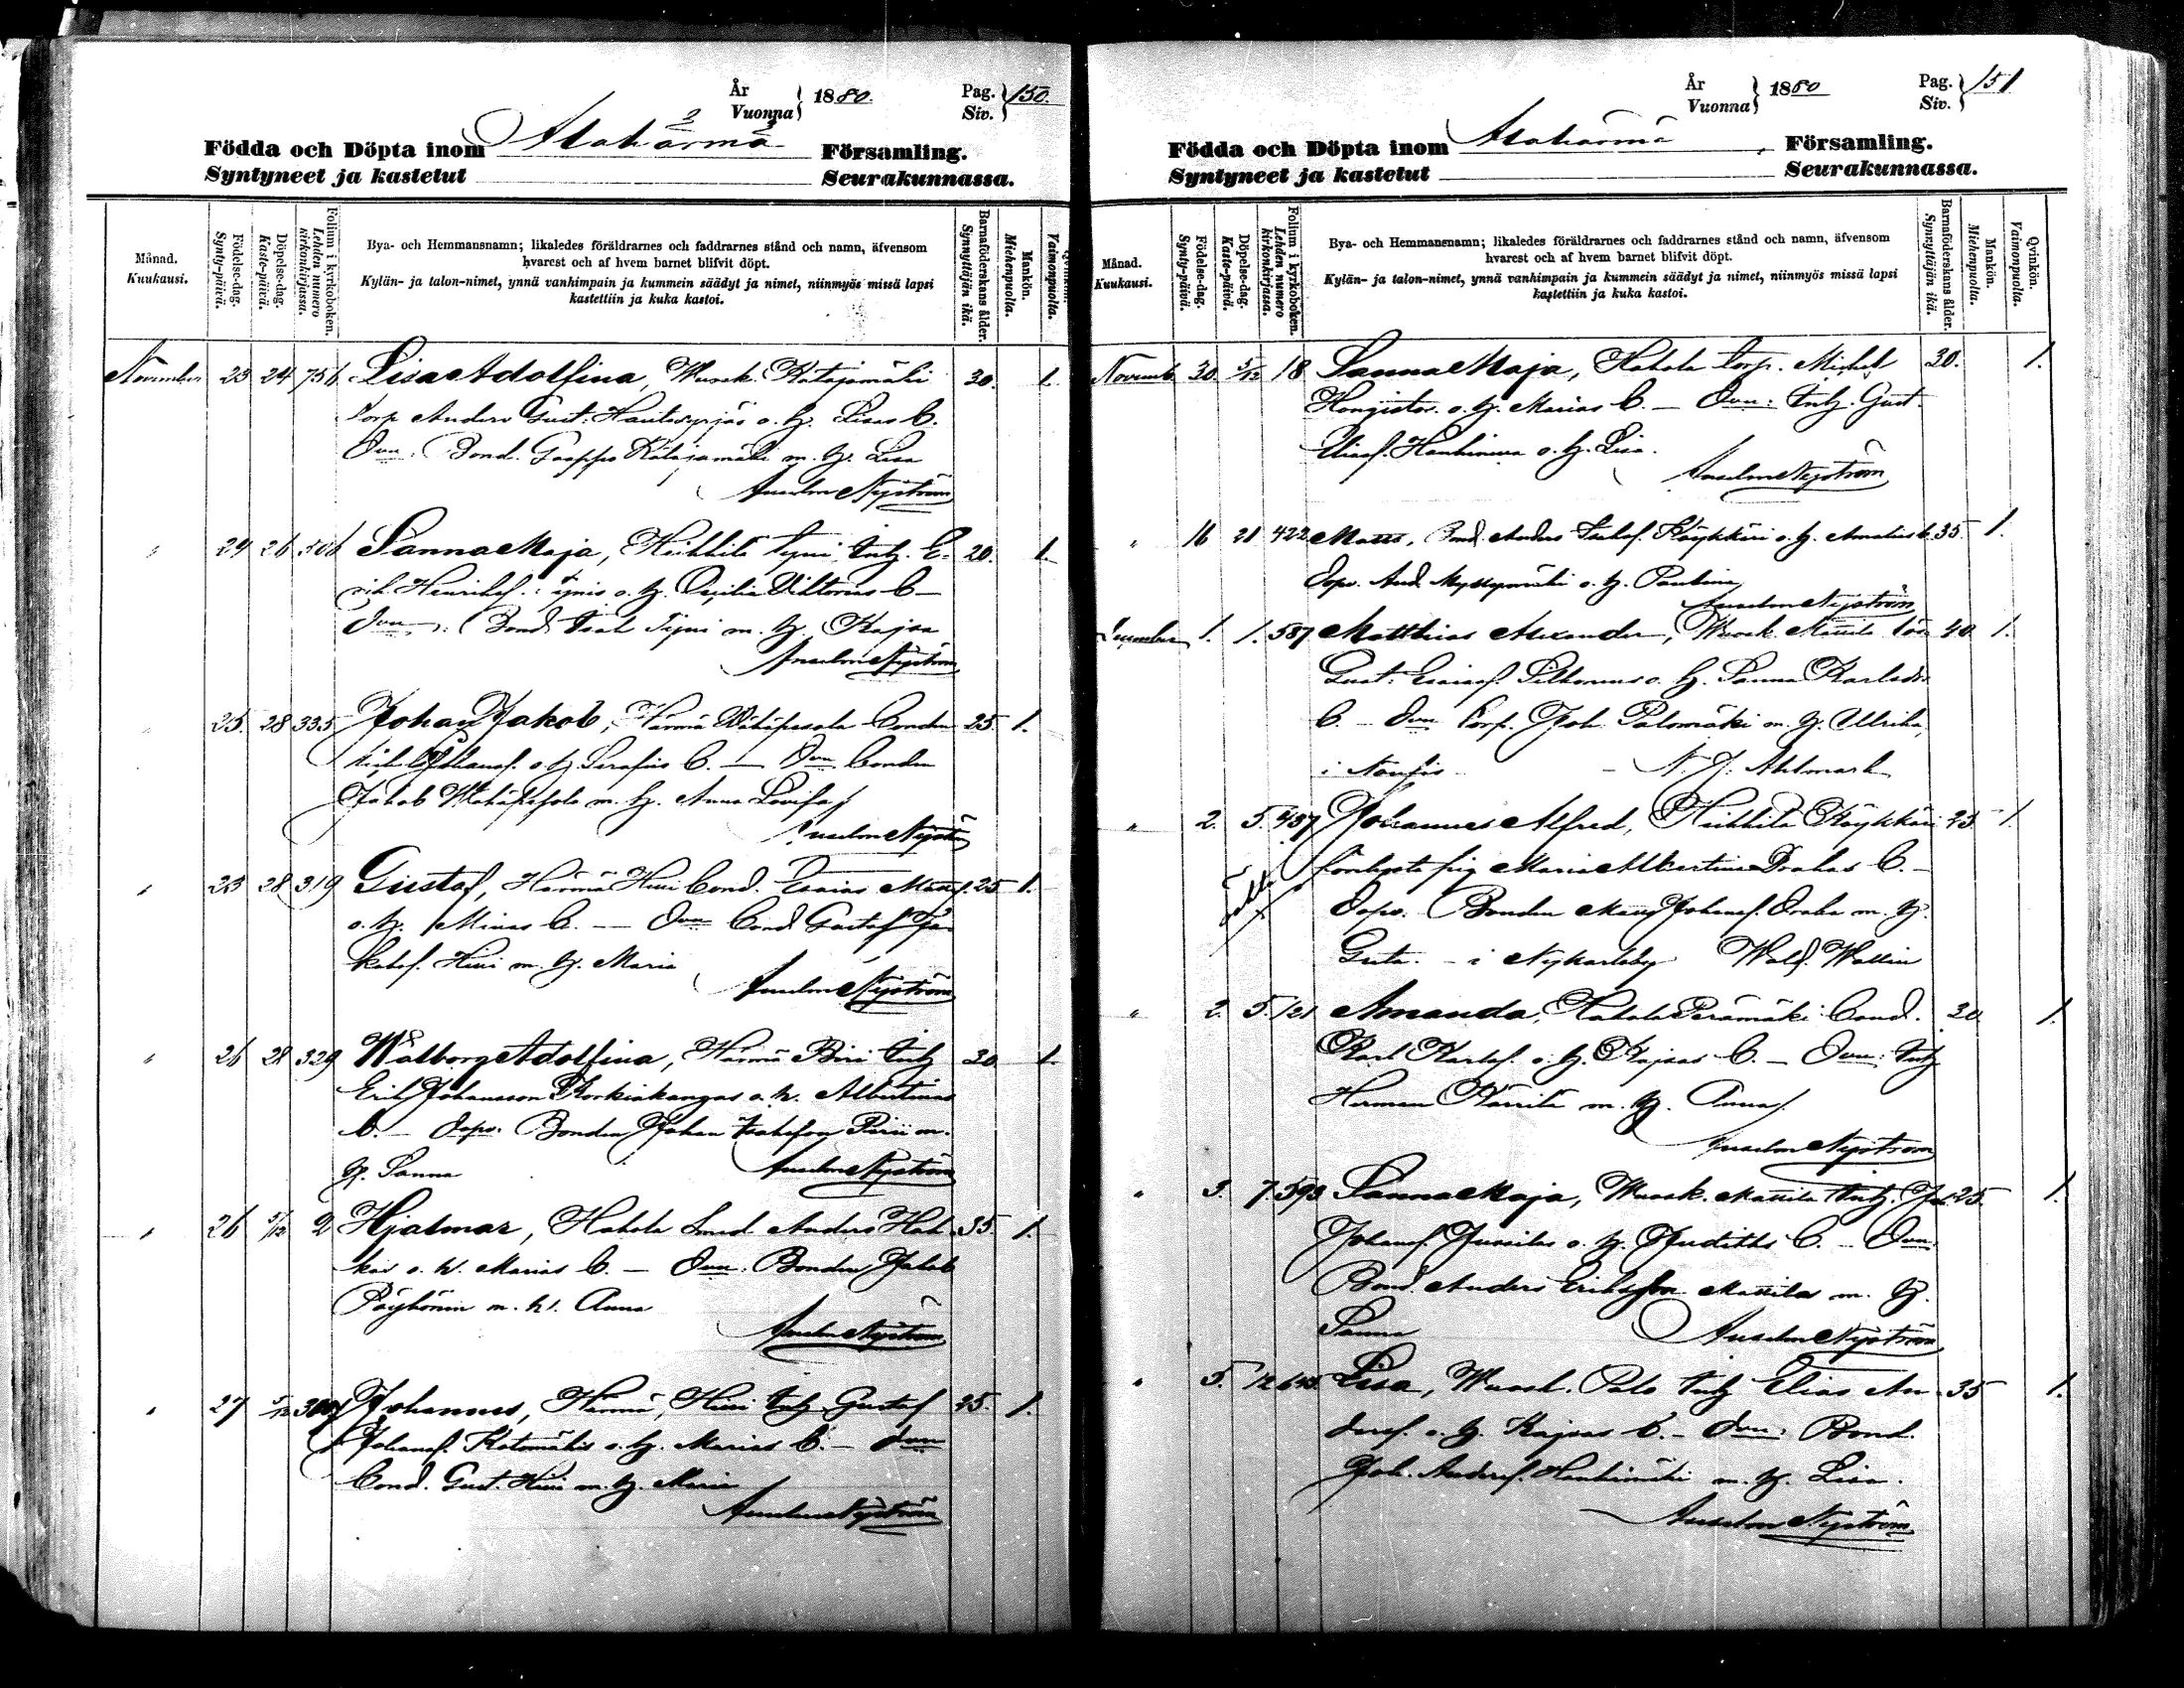 År
Vuonna } 1880.
Pag.
Siv. } 150.
Födda och Döpta inom Alahärmä Församling.
Syntyneet ja kastetut Seurakunnassa.
Månad.
Kuukausi.
Födelse-dag.
Synty-päivä.
Döpelse-dag.
Kaste-päivä.
Folium i kyrkoboken.
Lehden numero kirkonkirjassa.
Bya- och Hemmansnamn; likaledes föräldrarnes och faddrarnes stånd och namn, äfvensom
hvarest och af hvem barnet blifvit döpt.
Kylän- ja talon-nimet, ynnä vanhimpain ja kummein säädyt ja nimet, niinmyös missä lapsi
kastettiin ja kuka kastoi.
Barnaföderskans ålder.
Synnyttäjän ikä.
Mankön.
Miehenpuolta.
Qvinkön.
Vaimonpuolta.
November 23 24 756 Lisa Adolfina, Wuosk. Katajamäki 30. 1.
torp Anders Gust: Hautaviirjäs o. h. Lisas b.
Dvn: Bond. Gasppo Katajamäki m. h. Lisa
Anselm Nyström
" 24 26 506 Sanna Maja, Heikkilä Typni Inh. E- 20. 1.
rik Henriksf. o. h. Cecilia Viktorias b.
Dvn: Bond Isak Typni m. h. Kajsa
Anselm Nyström
" 25. 28 335 Johan Jakob, Härmä Wähäpesola bonden 25. 1.
Johansf. o. h. Serafias b. — Dvn bonden
Jakob Wähäpesola m. h. Anna Lovisa
Anselm Nyström
" 23 28 319 Gustaf, Härmä Hiiri bond. Esaias Mattsf. 25 1.
o. h. Minas b. — Dvn bond Gustaf Ja-
kobsf. Hiiri m. h. Maria
Anselm Nyström
" 26 28 329 Walborg Adolfina, Härmä Piri Inh 30 1.
Erik Johansson Korkiakangas o. h. Albertinas
b. — Dopv. Bonden Johan Isaksson Pirii m.
h. Sanna Anselm Nyström
" 26 5/12 2 Hjalmar, Hakola Smed Anders Hah- 35. 1.
kas o. h. Marias b. — Dvn: Bonden Jakob
Pöyhönen m. h. Anna
Anselm Nyström
" 27 5/12 300 Johannes, Härmä, Hiiri Inh Gustaf 25. 1.
Johansf. Katomäkis o. h. Marias b. — Dvn
bond. Gust. Hiiri m. h. Maria
Anselm Nyström
År
Vuonna } 1880
Pag.
Siv. } 151
Födda och Döpta inom Alahärmä Församling.
Syntyneet ja kastetut Seurakunnassa.
Månad.
Kuukausi.
Födelse-dag.
Synty-päivä.
Döpelse-dag.
Kaste-päivä.
Folium i kyrkoboken.
Lehden numero kirkonkirjassa.
Bya- och Hemmansnamn; likaledes föräldrarnes och faddrarnes stånd och namn, äfvensom
hvarest och af hvem barnet blifvit döpt.
Kylän- ja talon-nimet, ynnä vanhimpain ja kummein säädyt ja nimet, niinmyös missä lapsi
kastettiin ja kuka kastoi.
Barnaföderskans ålder.
Synnyttäjän ikä.
Mankön.
Miehenpuolta.
Qvinkön.
Vaimonpuolta.
Novemb. 30 5/12 18 Sanna Maja, Hakola torp. Michel 30. 1.
Hongistos. o. h. Marias b. — Dvn: Inh. Gust.
Eliasf. Haukineva o. h. Lisa.
Anselm Nyström
" 16 21 422 Matts, Bond. Anders Köykkäri o. h. Amalias b. 35. 1.
Dopv. And. Myllymäki o. h. Paulina
Anselm Nyström
December 1. 1. 587 Matthias Alexander, Wuosk Mattila lös 40 1.
Gust: Esaiasf. Silkonens o. h. Sanna Karlsdr
b. — Dvn torp. Joh. Palomäki m. h. Ulrika,
i Noufis — N. J. Ahlmark
" 2. 5. 437 Johannes Alfred, Heikkilä Köykkäri 25. 1.
oäkta
pig Maria Albertina Drakas b. —
Dopv. Bonden Matts Johansf. Draka m. h.
Greta. — i Nykarleby Wald. Wallin
" 2. 5. 121 Amanda, Hakola Perämäki bond. 30 1.
Karl Karlsf. o. h. Kajsas b. — Dvn: Inh
Herman Kärrilä m. h. Anna
Anselm Nyström
" 3. 7. 593 Sanna Maja, Wuosk. Mattila Inh. Joh. 25. 1.
Johansf. Jussilas o. h. Judiths b. — Dvn
Bond. Anders Eriksson Mattila m. h.
Sanna Anselm Nyström
" 5. 12 645 Lisa, Wuosk. Palo Inh Elias An- 35 1.
dersf. o. h. Kajsas b. — Dvn: Bond.
Joh. Andersf. Haukimäki m. h. Lisa.
Anselm Nyström